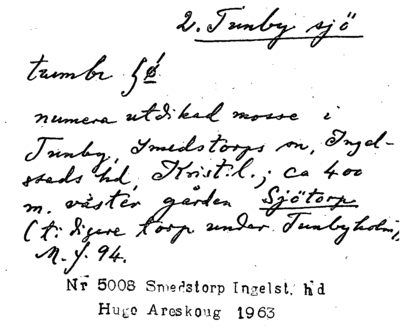 2. Tunby sjö
numera utdikad mosse i
Tunby, Smedstorps sn, Ingel-
stads hd, Krist. l.; ca 400
m. väster gården Sjötorp
(tidigare torp under Tunbyholm),
Nr 5008 Smedstorp Ingelst. hd
Hugo Areskoug 1963